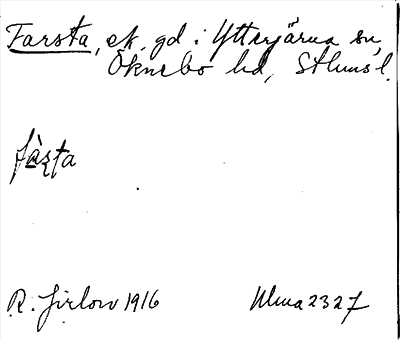 Farsta, ek. gd. i Ytterjärna sn,
Öknebo hd, Sthms l.
fàșta
R. Jirlow 1916 Ulma 2327